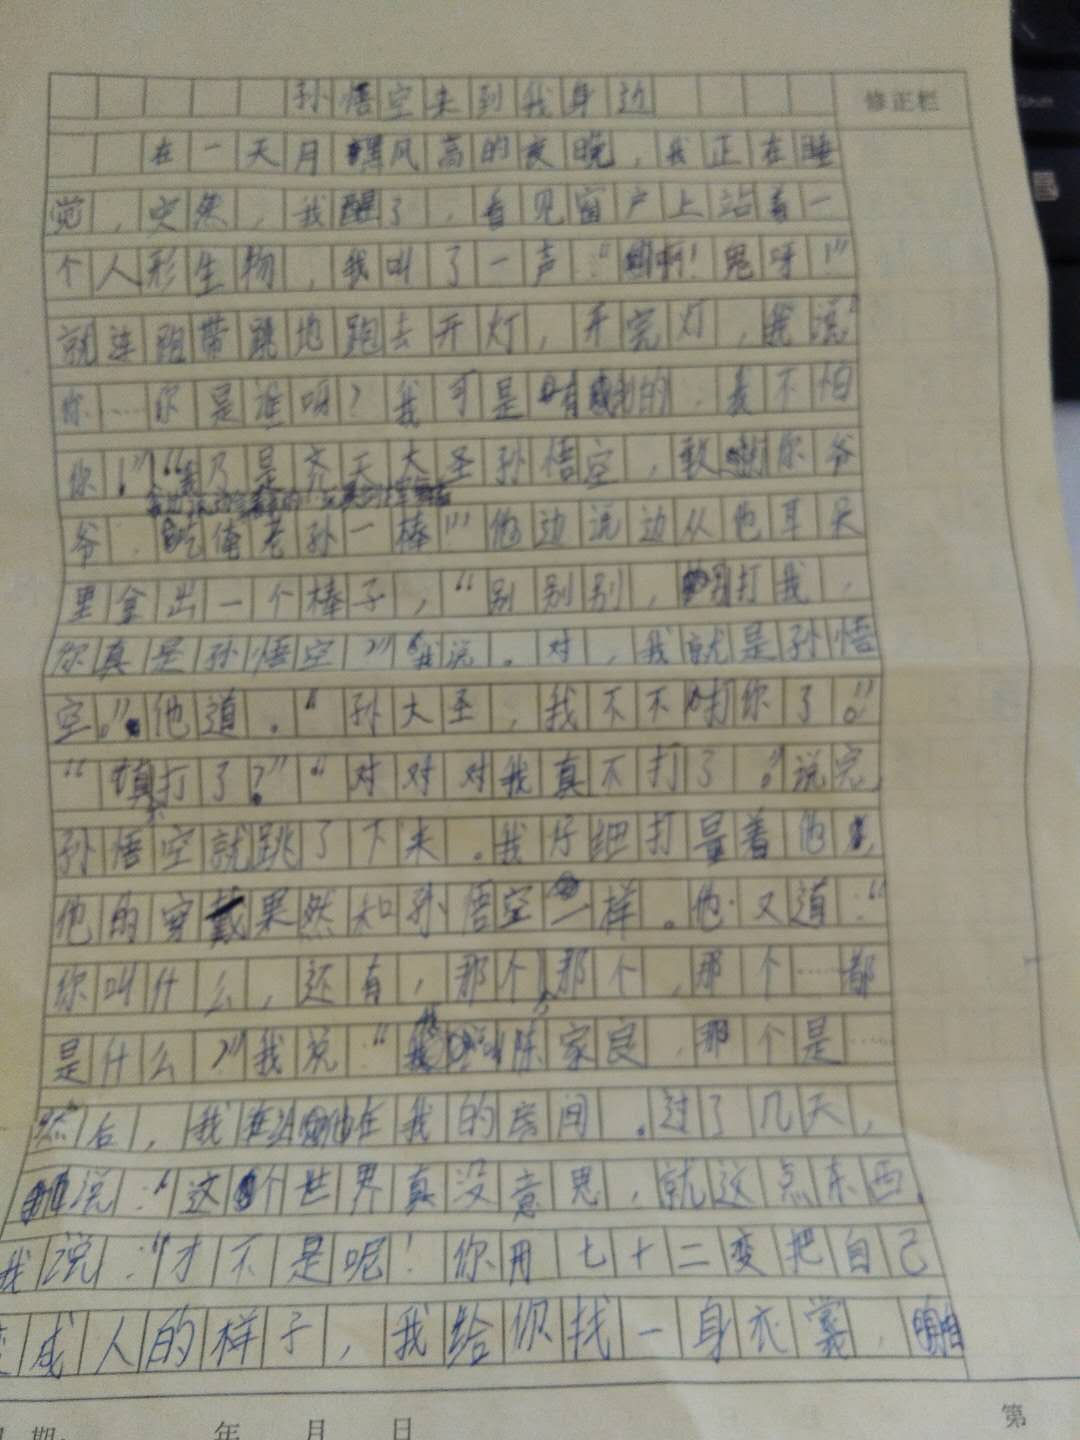 孙悟空来到我身边
修正栏
在一天月黑风高的夜晚，我正在睡
觉，突然，我醒了，看见窗户上站着一
个人形生物，我叫了一声：“啊！鬼呀！”
就连跑带跳地跑去开灯，开完灯，我说：“
你……你是谁呀？我可是有的，我不怕
你！”“乃是齐天大圣孙悟空，敢你爷
爷，吃俺老孙一棒！”他边说边从他耳朵
里拿出一个棒子，“别别别，别打我，
你真是孙悟空？”我说。对，我就是孙悟
空。”他道。“孙大圣，我不不打你了。”
“真不打了？”“对对对我真不打了。”说完，
孙悟空就跳了下来。我仔细打量着他，
他的穿戴果然和孙悟空一样。他又道：“
你叫什么，还有，那个，那个，那个……都
是什么？”我说：“我叫陈家良，那个是……
然后，我让他在我的房间。过了几天，
他说：“这个世界真没意思，就这点东西，
我说：“才不是呢！你用七十二变把自己
变成人的样子，我给你找一身衣裳，
期： 年 月 日
第